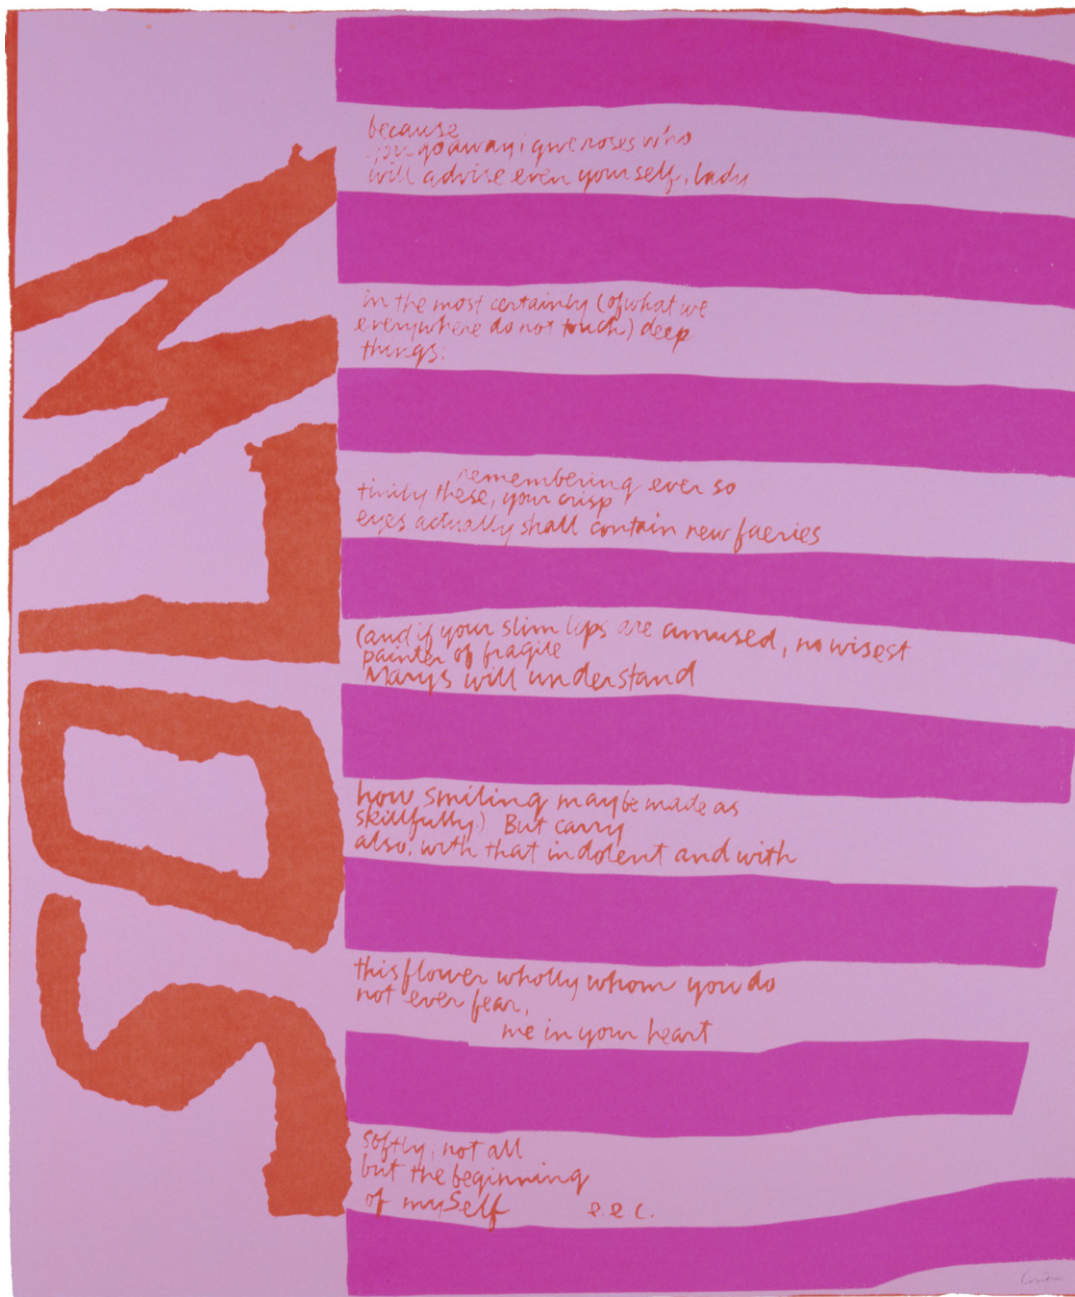 SOLW
because
you go away i give roses who
will advise even yourself, lady
in the most certainly (of what we
everywhere do not touch) deep
things;
remembering ever so
tinily these, your crisp
eyes actually shall contain new faeries
(and if your slim lips are amused, no wisest
painter of fragile
Marys will understand
how smiling may be made as
skillfully.) But carry
also, with that indolent and with
this flower wholly whom you do
not ever fear,
me in your heart
softly; not all
but the beginning
of mySelf e.e c.
Corita